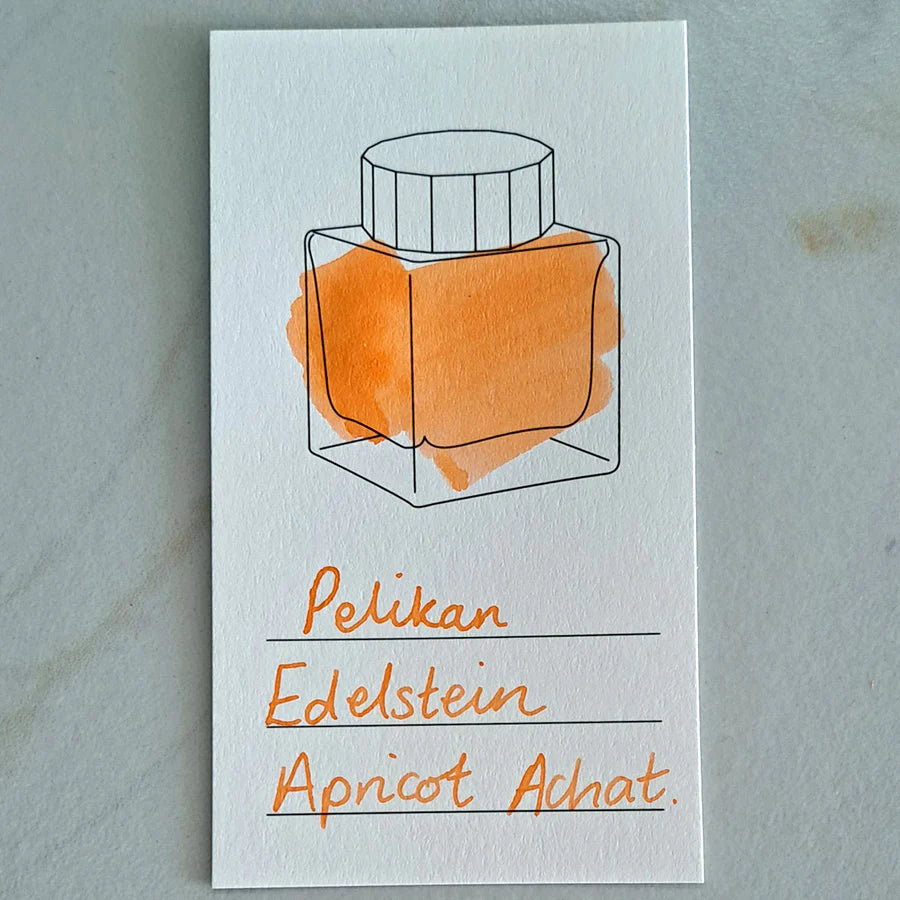 Pelikan
Edelstein
Apricot Achat.